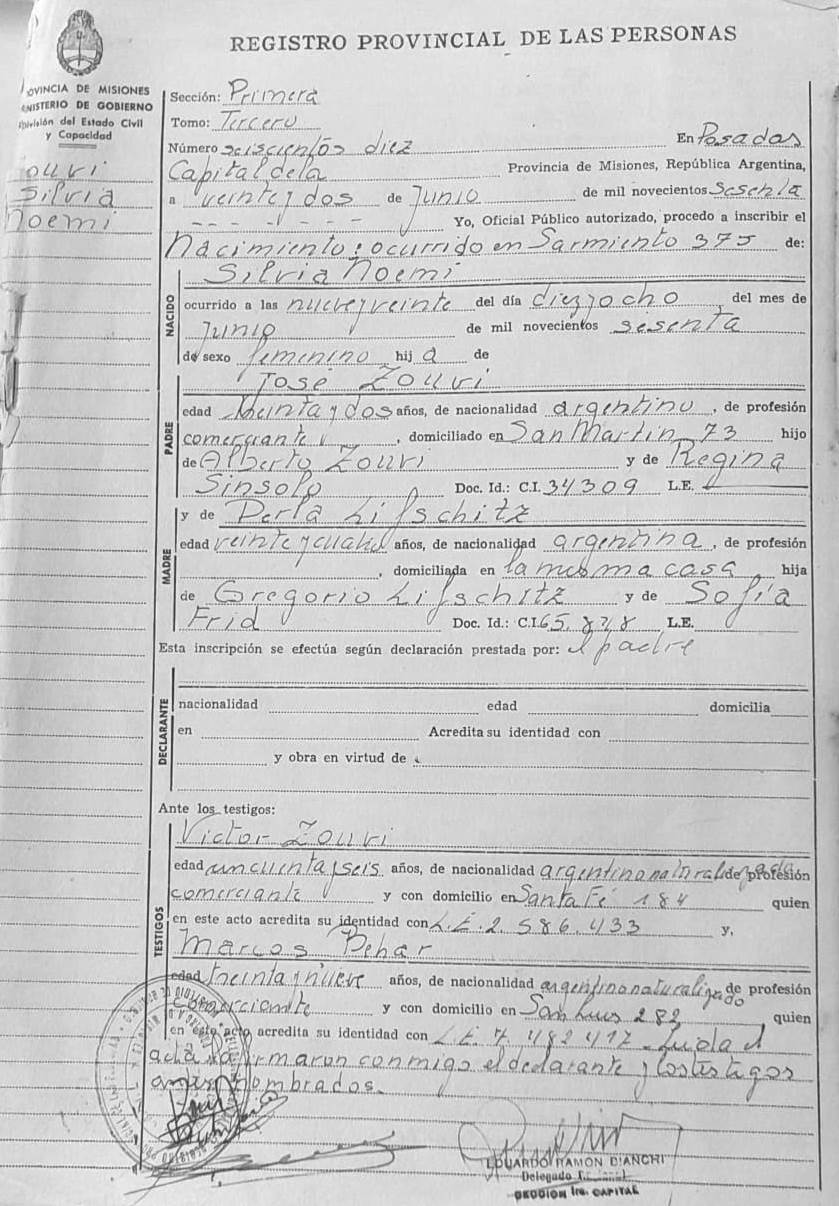 REGISTRO PROVINCIAL DE LAS PERSONAS
OVINCIA DE MISIONES
NISTERIO DE GOBIERNO
División del Estado Civil
y Capacidad
ouri
Silvia
Noemi
Sección: Primera
Tomo: Tercero
Número seiscientos diez En Posadas
Capital de la Provincia de Misiones, República Argentina,
a veinte y dos de Junio de mil novecientos Sesenta
Yo, Oficial Público autorizado, procedo a inscribir el
Nacimiento: ocurrido en Sarmiento 375 de:
NACIDO
Silvia Noemi
ocurrido a las nueve y veinte del día diez y ocho del mes de
Junio de mil novecientos sesenta
de sexo femenino hij a de
PADRE
José Zouri
edad treinta y dos años, de nacionalidad argentino, de profesión
comerciante, domiciliado en San Martin 73 hijo
de Alberto Zouri y de Regina
Sinsolo Doc. Id.: C.I. 34309 L.E.
MADRE
y de Perla Lifschitz
edad veinte y cuatro años, de nacionalidad argentina, de profesión
, domiciliada en la misma casa, hija
de Gregorio Lifschitz y de Sofía
Frid Doc. Id.: C.I. 65.828 L.E.
Esta inscripción se efectúa según declaración prestada por: el padre
DECLARANTE
nacionalidad edad domicilia
en Acredita su identidad con
y obra en virtud de
Ante los testigos:
TESTIGOS
Victor Zouri
edad cincuenta y seis años, de nacionalidad argentino naturalizado de profesión
comerciante y con domicilio en Santa Fé 184 quien
en este acto acredita su identidad con L.E. 2.586.433 y,
Marcos Behar
edad treinta y nueve años, de nacionalidad argentino naturalizado de profesión
comerciante y con domicilio en San Luis 282 quien
en este acto acredita su identidad con L.E. 7.482.417. Leída el
acta la firmaron conmigo el declarante y los testigos
nombrados.
EDUARDO RAMON BIANCHI
Delegado
SECCION 1ra. CAPITAL